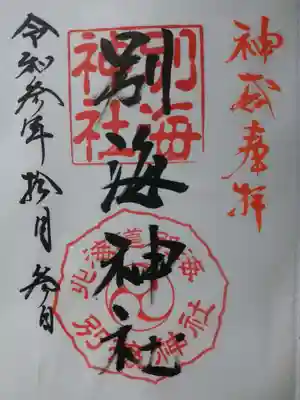 奉拝
別海神社
令和参年拾月参日
別海
神社
北海道別海
別海神社